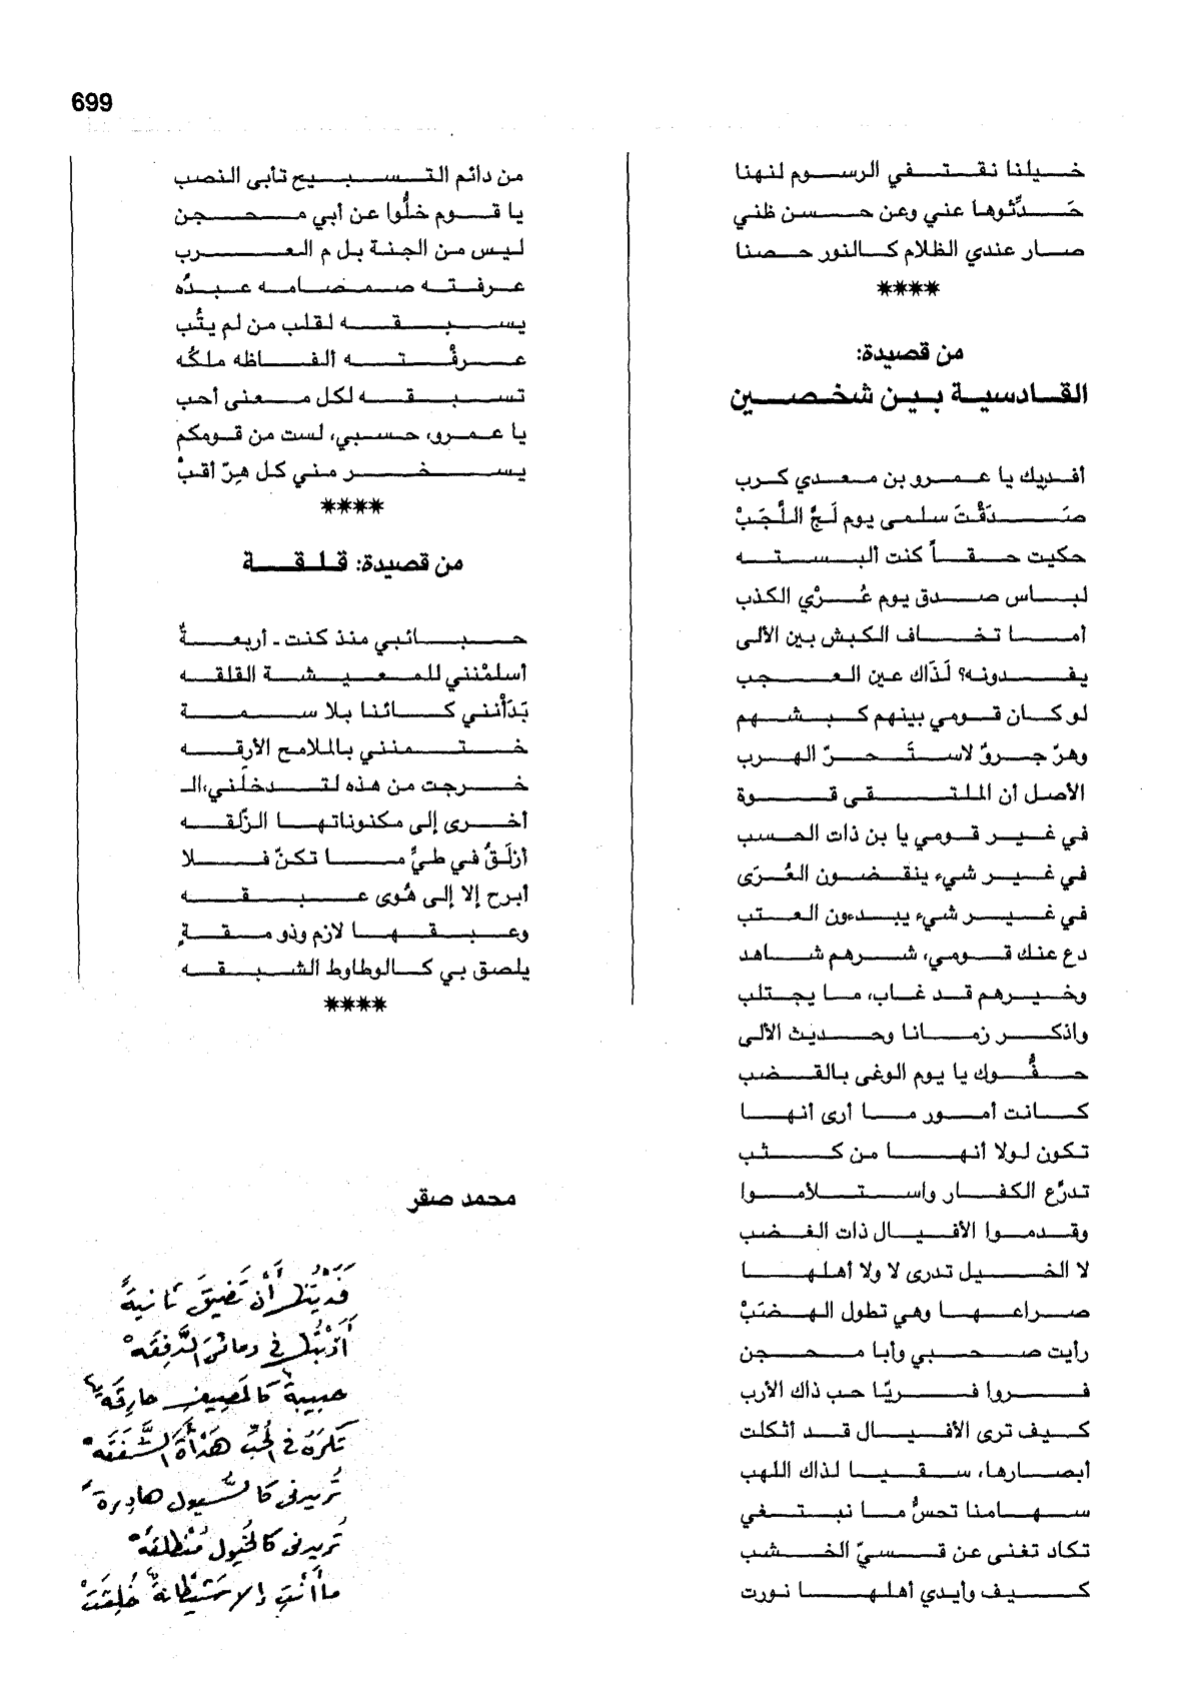 699
خيلنا نقتفي الرسوم لنهنا
حَدِّثوها عني وعن حسن ظني
صار عندي الظلام كالنور حصنا
****
من قصيدة:
القادسية بين شخصين
أفديك يا عمرو بن معدي كرب
صَدَقْتَ سلمى يوم لَجَّ اللَّجَبْ
حكيت حقاً كنت ألبسته
لباس صدق يوم عُرْي الكذب
أما تخاف الكبش بين الألى
يفدونه؟ لَذَاك عين العجب
لو كان قومي بينهم كبشهم
وهرّ جروٌ لاستَحرّ الهرب
الأصل أن الملتقى قوة
في غير قومي يا بن ذات الحسب
في غير شيء ينقضون العُرَى
في غير شيء يبدءون العتب
دع عنك قومي، شرهم شاهد
وخيرهم قد غاب، ما يجتلب
واذكر زمانا وحديث الألى
حفُّوك يا يوم الوغى بالقضب
كانت أمور ما أرى أنها
تكون لولا أنها من كثب
تدرَّع الكفار واستلاموا
وقدموا الأفيال ذات الغضب
لا الخيل تدرى لا ولا أهلها
صراعها وهي تطول الهضَبْ
رأيت صحبي وأبا محجن
فروا فريًا حب ذاك الأرب
كيف ترى الأفيال قد أثكلت
أبصارها، سقيا لذاك اللهب
سهامنا تحسُّ ما نبتغي
تكاد تغنى عن قسيّ الخشب
كيف وأيدي أهلها نورت
من دائم التسبيح تأبى النصب
يا قوم خلُّوا عن أبي محجن
ليس من الجنة بل م العرب
عرفته صمصامه عبدُه
يسبقه لقلب من لم يتُب
عرفْته ألفاظه ملكُه
تسبقه لكل معنى أحب
يا عمرو، حسبي، لست من قومكم
يسخر مني كل هِرّ أقبْ
****
من قصيدة: قلقة
حبائبي منذ كنت - أربعةٌ
أسلمْنني للمعيشة القلقه
بَدَأنني كائنا بلا سمة
ختمنني بالملامح الأرِقه
خرجت من هذه لتدخلَني،الـ
أخرى إلى مكنوناتها الزّلقه
أزلَقُ في طيِّ ما تكنّ فلا
أبرح إلا إلى هُوى عبقه
وعبقها لازم وذو مقةٍ
يلصق بي كالوطاوط الشبقه
****
محمد صقر
فَدَيْتُها أَنْ تَضِيقَ ثانيةً
أَذَبْتُها في دمائيَ الدَّفِقَهْ
حبيبةٌ كالمَصِيفِ حارِقَةٌ
تَكرَهُ في الحُبِّ هَدْأَةَ الشَّفَقَهْ
تُريدني كالسُّيول هادِرةً
تُريدني كالخيول مُنْطلقَهْ
ما أَنْتِ إلا شَيْطانةٌ خُلِقَتْ